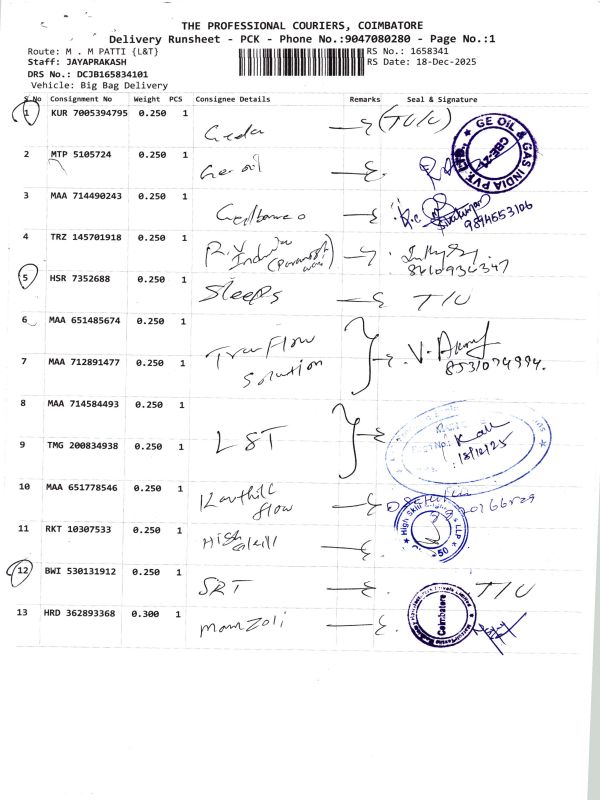 THE PROFESSIONAL COURIERS, COIMBATORE
Delivery Runsheet - PCK - Phone No.:9047080280 - Page No.:1
Route: M . M PATTI {L&T}
RS No.: 1658341
Staff: JAYAPRAKASH
RS Date: 18-Dec-2025
DRS No.: DCJB165834101
Vehicle: Big Bag Delivery
S.No Consignment No Weight PCS Consignee Details Remarks Seal & Signature
1 KUR 7005394795 0.250 1 (T/U)
GE OIL & GAS INDIA PVT. LTD.
2 MTP 5105724 0.250 1 Ge oil
3 MAA 714490243 0.250 1
9894553106
4 TRZ 145701918 0.250 1 R.V India
5 HSR 7352688 0.250 1 Sleeps T/U
6 MAA 651485674 0.250 1
7 MAA 712891477 0.250 1 Flow Solution
8531074994.
8 MAA 714584493 0.250 1
9 TMG 200834938 0.250 1 L&T
18/12/25
10 MAA 651778546 0.250 1 flow
11 RKT 10307533 0.250 1 High skill
12 BWI 530131912 0.250 1 SRT T/U
13 HRD 362893368 0.300 1
Coimbatore